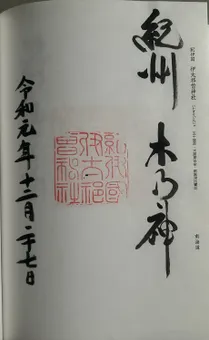 紀伊国 伊太祁曽神社
紀州 木の神
紀伊國
伊太祁
曽神社
令和元年十二月二十七日